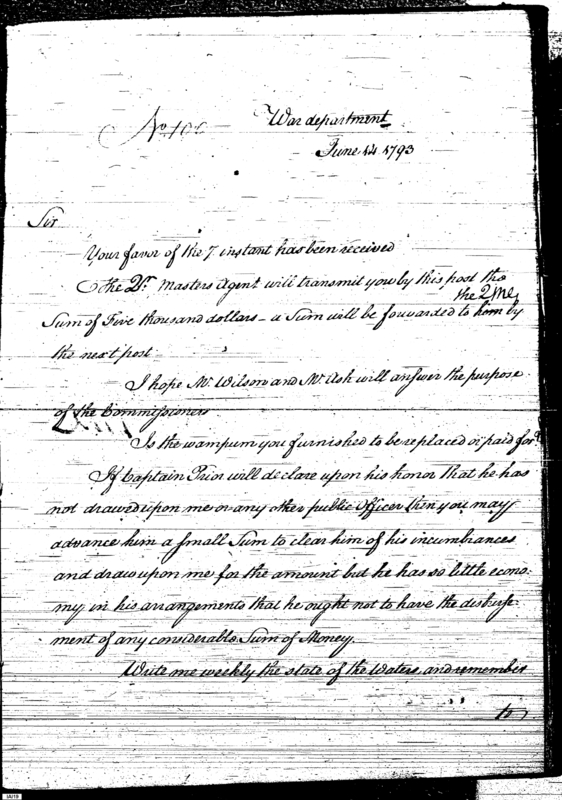 No. 106
War department
June 14 1793
Sir
Your favor of the 7. instant has been received
The Qr. Masters Agent will transmit you by this post the
the 2 Mr
Sum of Five thousand dollars - a Sum will be forwarded to him by
the next post
I hope Mr. Wilson and Mr. Ash will answer the purpose
of the Commissioners
Is the wampum you furnished to be replaced or paid for?
If Captain Prior will declare upon his honor that he has
not drawed upon me or any other public Officer then you may
advance him a small Sum to clear him of his incumbrances
and draw upon me for the amount but he has so little econo-
my in his arrangements that he ought not to have the disburse-
ment of any considerable Sum of Money.
Write me weekly the state of the Waters and remember
to
IAI19